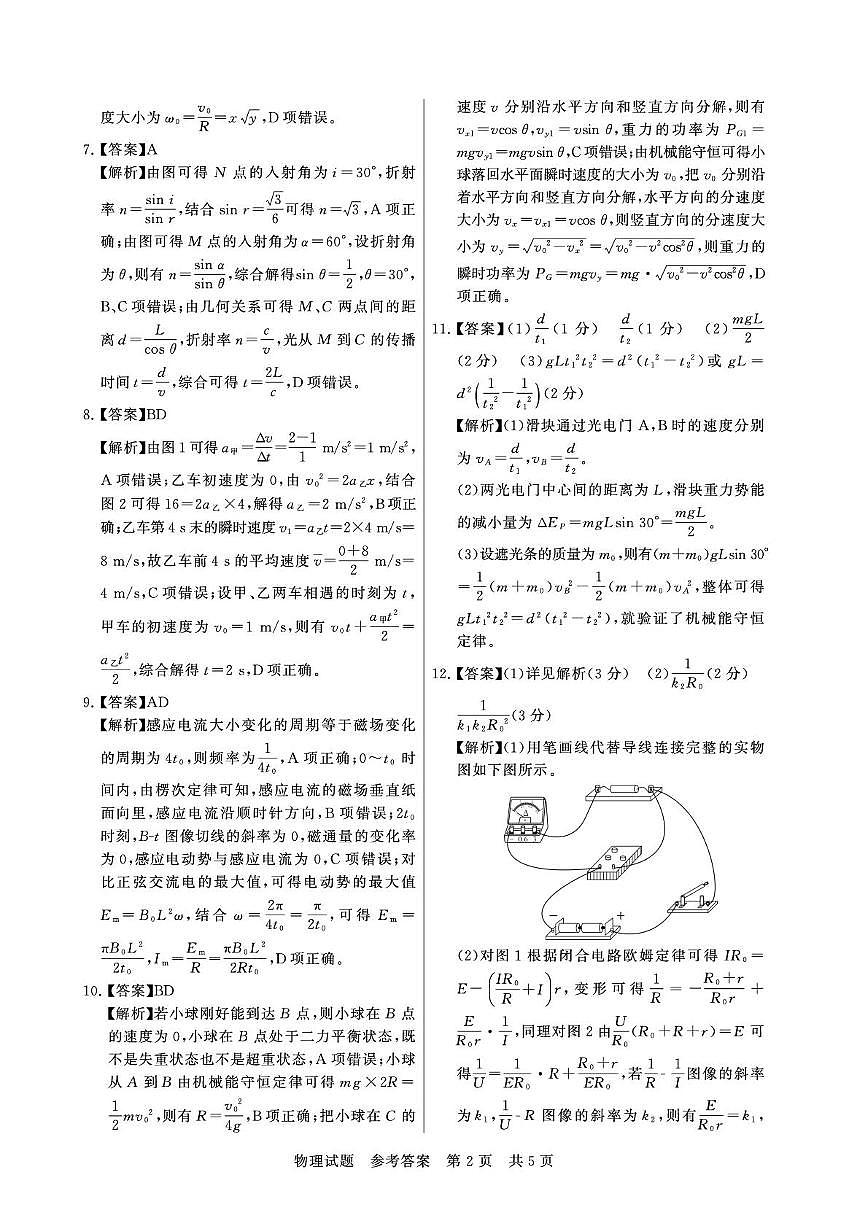 度大小为 ω₀=v₀/R=x√y,D项错误。
7.【答案】A
【解析】由图可得 N 点的入射角为 i=30°,折射
率 n=sin i/sin r,结合 sin r=√3/6可得 n=√3,A 项正
确;由图可得 M 点的入射角为 α=60°,设折射角
为 θ,则有 n=sin α/sin θ,综合解得sin θ=1/2,θ=30°,
B、C 项错误;由几何关系可得 M、C 两点间的距
离 d=L/cos θ,折射率 n=c/v,光从 M 到 C 的传播
时间 t=d/v,综合可得 t=2L/c,D 项错误。
8.【答案】BD
【解析】由图 1 可得 a甲=Δv/Δt=(2−1)/1 m/s²=1 m/s²,
A 项错误;乙车初速度为 0,由 v₀²=2a乙x,结合
图 2 可得 16=2a乙×4,解得 a乙=2 m/s²,B项正
确;乙车第 4 s 末的瞬时速度 v₁=a乙t=2×4 m/s=
8 m/s,故乙车前 4 s 的平均速度 v̄=(0+8)/2 m/s=
4 m/s,C 项错误;设甲、乙两车相遇的时刻为 t,
甲车的初速度为 v₀=1 m/s,则有 v₀t+a甲t²/2=
a乙t²/2,综合解得 t=2 s,D 项正确。
9.【答案】AD
【解析】感应电流大小变化的周期等于磁场变化
的周期为 4t₀,则频率为1/4t₀,A 项正确;0～t₀ 时
间内,由楞次定律可知,感应电流的磁场垂直纸
面向里,感应电流沿顺时针方向,B 项错误;2t₀
时刻,B-t 图像切线的斜率为 0,磁通量的变化率
为 0,感应电动势与感应电流为 0,C 项错误;对
比正弦交流电的最大值,可得电动势的最大值
Eₘ=B₀L²ω,结合 ω=2π/4t₀=π/2t₀,可得 Eₘ=
πB₀L²/2t₀,Iₘ=Eₘ/R=πB₀L²/2Rt₀,D 项正确。
10.【答案】BD
【解析】若小球刚好能到达 B 点,则小球在 B 点
的速度为 0,小球在 B 点处于二力平衡状态,既
不是失重状态也不是超重状态,A 项错误;小球
从 A 到 B 由机械能守恒定律可得 mg×2R=
1/2mv₀²,则有 R=v₀²/4g,B 项正确;把小球在 C 的
速度 v 分别沿水平方向和竖直方向分解,则有
vₓ₁=vcos θ,v_y1=vsin θ,重力的功率为 P_G1=
mgv_y1=mgvsin θ,C项错误;由机械能守恒可得小
球落回水平面瞬时速度的大小为 v₀,把 v₀ 分别沿
着水平方向和竖直方向分解,水平方向的分速度
大小为 vₓ=vₓ₁=vcos θ,则竖直方向的分速度大
小为 v_y=√(v₀²−vₓ²)=√(v₀²−v²cos²θ),则重力的
瞬时功率为 P_G=mgv_y=mg·√(v₀²−v²cos²θ),D
项正确。
11.【答案】(1)d/t₁(1 分) d/t₂(1 分) (2)mgL/2
(2分) (3)gLt₁²t₂²=d²(t₁²−t₂²)或 gL=
d²(1/t₂²−1/t₁²)(2分)
【解析】(1)滑块通过光电门 A,B 时的速度分别
为 v_A=d/t₁,v_B=d/t₂。
(2)两光电门中心间的距离为 L,滑块重力势能
的减小量为 ΔE_P=mgLsin 30°=mgL/2。
(3)设遮光条的质量为 m₀,则有(m+m₀)gLsin 30°
=1/2(m+m₀)v_B²−1/2(m+m₀)v_A²,整体可得
gLt₁²t₂²=d²(t₁²−t₂²),就验证了机械能守恒
定律。
12.【答案】(1)详见解析(3 分) (2)1/k₂R₀(2 分)
1/k₁k₂R₀²(3 分)
【解析】(1)用笔画线代替导线连接完整的实物
图如下图所示。
A
− 0.6
− +
(2)对图 1 根据闭合电路欧姆定律可得 IR₀=
E−(IR₀/R+I)r,变形可得1/R=−(R₀+r)/R₀r+
E/R₀r·1/I,同理对图 2 由U/R₀(R₀+R+r)=E 可
得1/U=1/ER₀·R+(R₀+r)/ER₀,若1/R-1/I图像的斜率
为 k₁,1/U-R 图像的斜率为 k₂,则有E/R₀r=k₁,
物理试题 参考答案 第 2 页 共 5 页